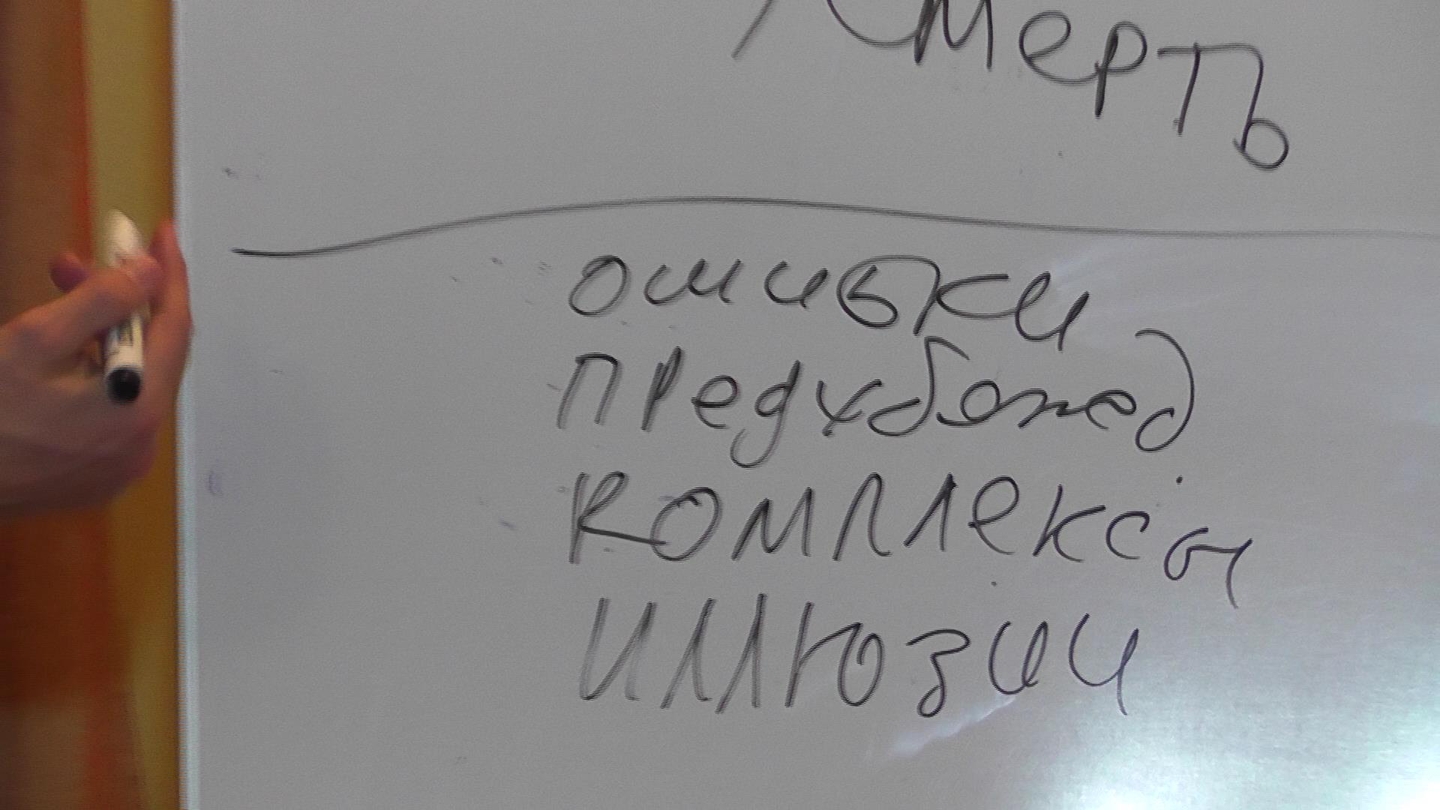 смерть
ошибки
предубежд
комплексы
иллюзии